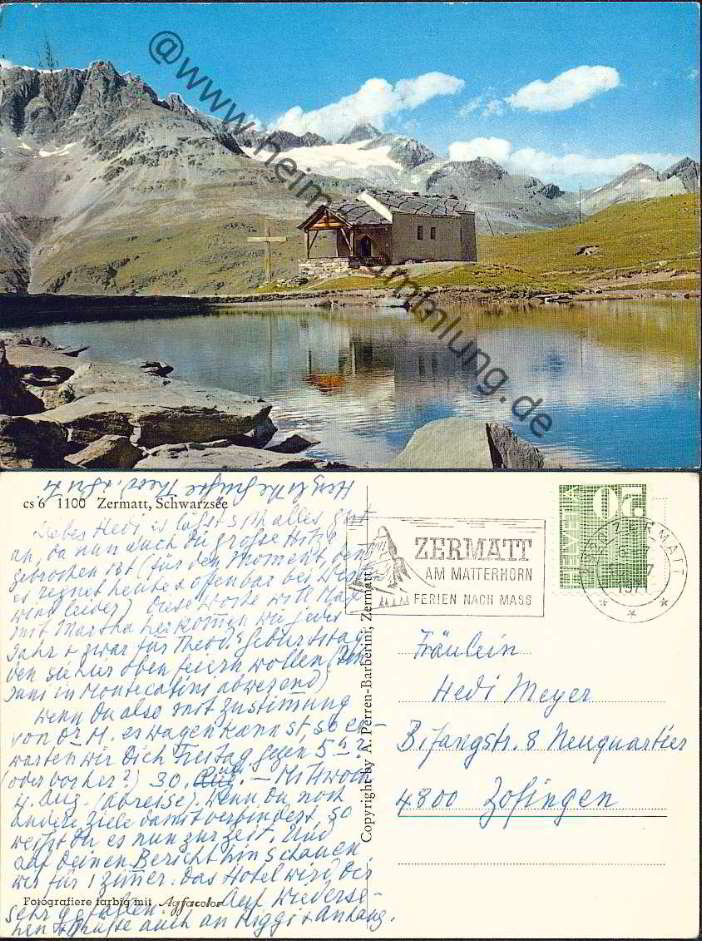 @www.heimatsammlung.de
Herzliche Grüsse Theod. + Gritli
cs 6 1100 Zermatt, Schwarzsee
Liebes Hedi, es lässt sich alles gut
an, da nun auch die grosse Hitze
gebrochen ist (für den Moment denn
es regnet heute + offenbar bei
wird leider). Diese Woche will Max
mit Martha herkommen wie jedes
Jahr + zwar für Theod's Geburtstag,
den sie hier oben feiern wollen
in Montecatini abwesend)
Wenn Du also mit Zustimmung
von Dr M. es wagen kannst, so er-
warten wir Dich Freitag gegen 5 h ?
(oder vorher?) 30. – Mittwoch
4. Aug. (Abreise). Wenn Du noch
andere Ziele damit verbindest, so
weisst Du es nun zur Zeit. Und
auf Deinen Bericht hin schauen
wir für 1 Zimmer. Das Hotel wird Dir
sehr gefallen. Auf Wiederse-
hen + Grüsse auch an Miggi + Anhang.
Fotografiere farbig mit Agfacolor
Copyright by A. Perren-Barberini, Zermatt
ZERMATT
AM MATTERHORN
FERIEN NACH MASS
HELVETIA
10
ZERMATT
1971
Fräulein
Hedi Meyer
Bifangstr. 8 Neuquartier
4800 Zofingen